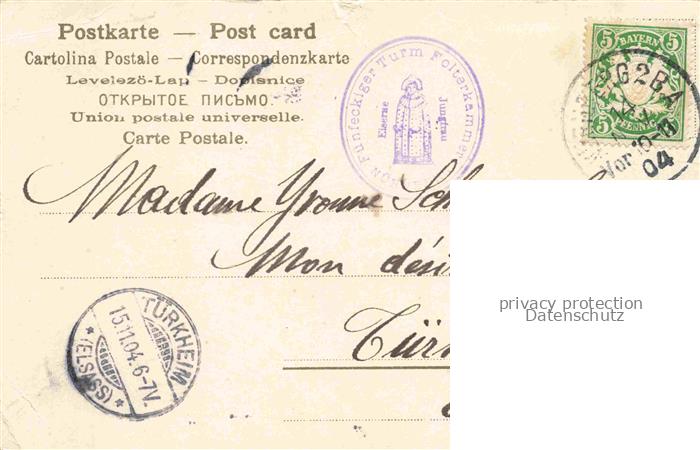 Postkarte — Post card
Cartolina Postale — Correspondenzkarte
Levelező-Lap — Dopisnice
ОТКРЫТОЕ ПИСЬМО.
Union postale universelle.
Carte Postale.
Fünfeckiger Turm Folterkammer
Eiserne Jungfrau
5 BAYERN 5
5 PFENNIG 5
G2BA
Vor
04
Madame Yvonne Sch
Mon dési
Tür
TÜRKHEIM
15.11.04.6-7V.
* (ELSASS) *
privacy protection
Datenschutz